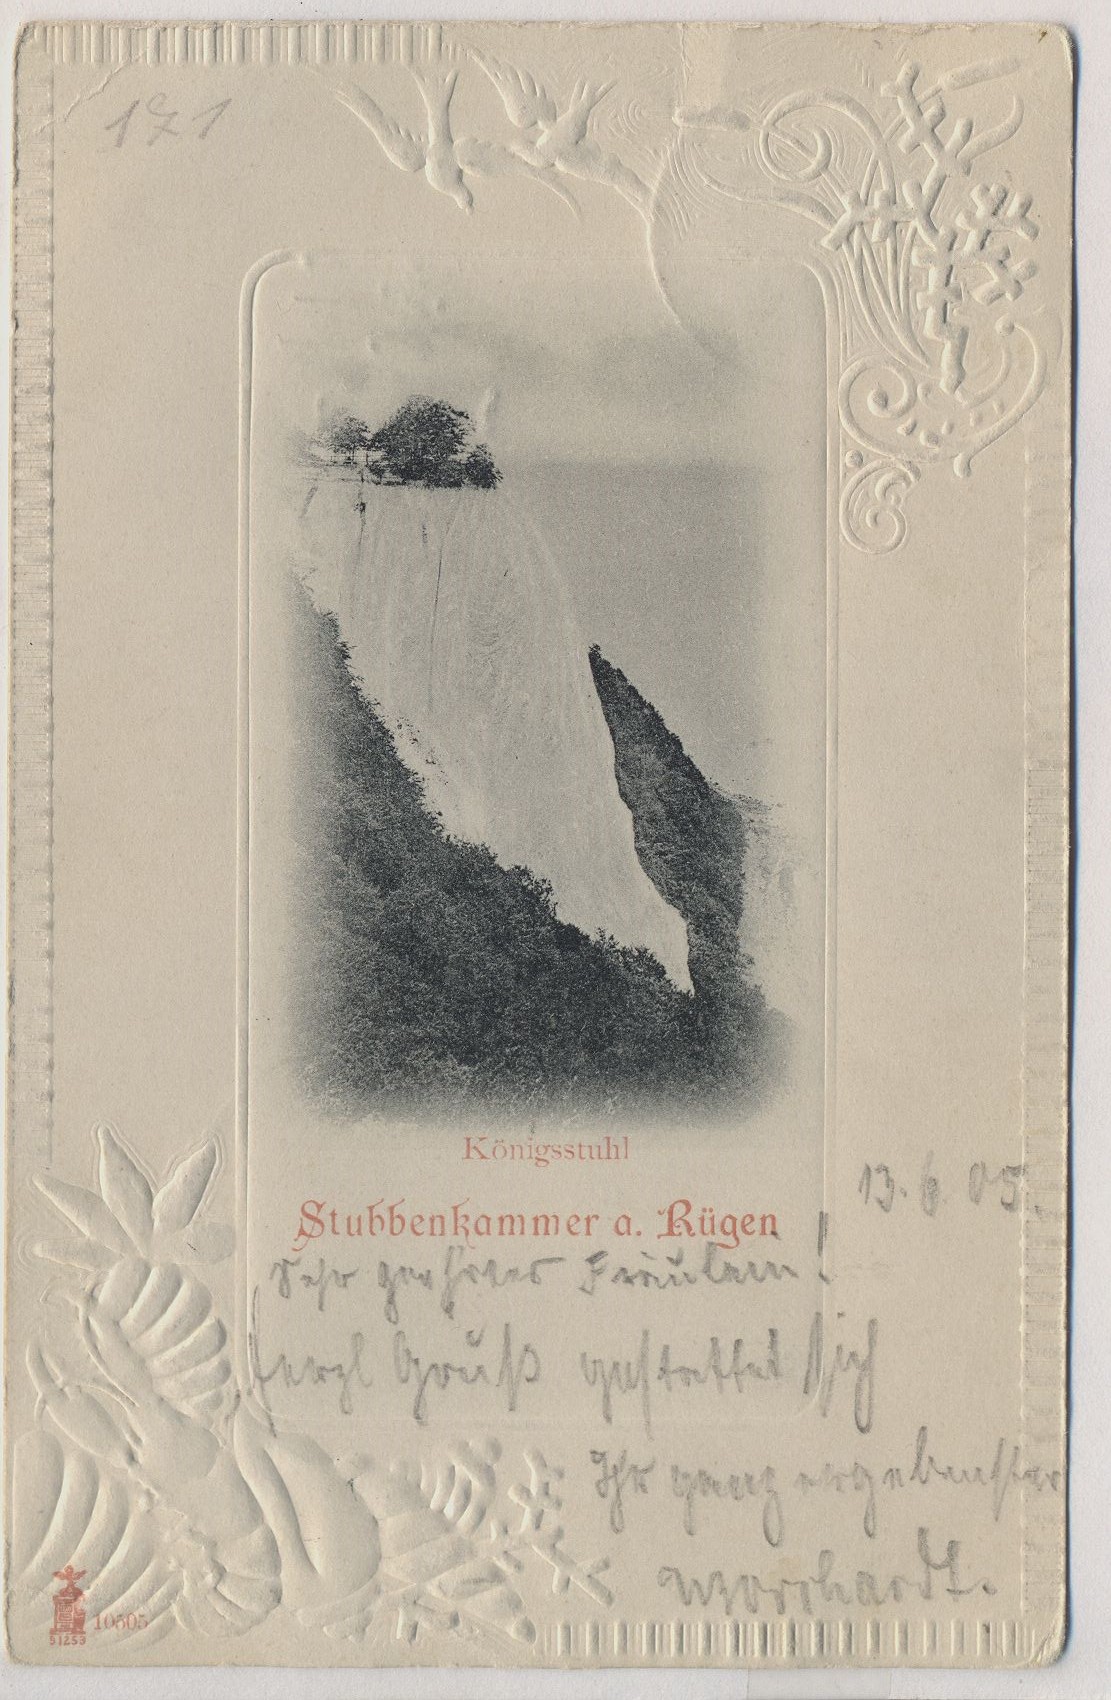 171
Königsstuhl
Stubbenkammer a. Rügen
13. 6. 05.
Sehr geehrtes Fräulein!
Herzl Gruß gestattet sich
Ihr ganz ergebenster
10505
51259